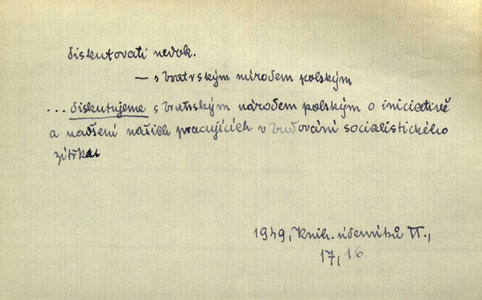 diskutovati nedok.
— s bratrským národem polským
... diskutujeme s bratrským národem polským o iniciativě
a nadšení našich pracujících v budování socialistického
zítřka
1949, Knih. účerníků VI.,
17, 16